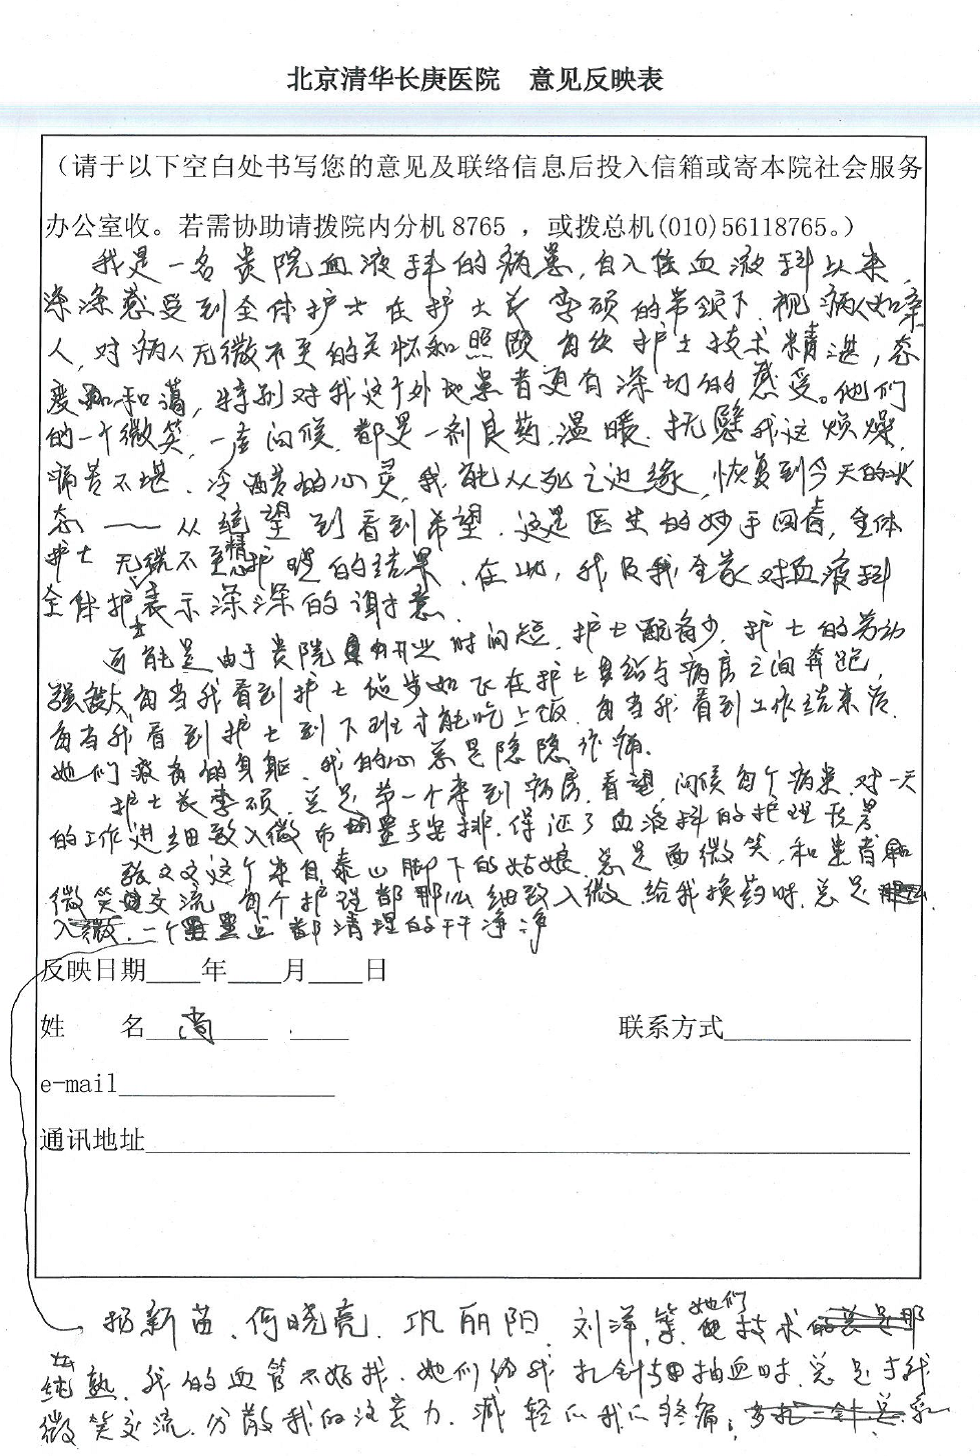 北京清华长庚医院 意见反映表
（请于以下空白处书写您的意见及联络信息后投入信箱或寄本院社会服务
办公室收。若需协助请拨院内分机8765 ，或拨总机(010)56118765。）
我是一名贵院血液科的病患,自入住血液科以来,
深深感受到全体护士在护士长李硕的带领下,视病人如亲
人,对病人无微不至的关怀和照顾 每位护士技术精湛,态
度和蔼,特别对我这个外地患者更有深切的感受。他们
的一个微笑,一声问候,都是一剂良药,温暖.抚慰我这烦燥,
痛苦不堪.冷酷的心灵,我能从死之边缘,恢复到今天的状
态——从绝望到看到希望.这是医生的妙手回春,全体
护士无微不至精心护理的结果.在此,我及我全家对血液科
全体护士表示深深的谢意.
可能是由于贵院开业时间短.护士配备少.护士的劳动
强度大,每当我看到护士健步如飞在护士站与病房之间奔跑,
每当我看到护士到下班才能吃上饭.每当我看到工作结束后.
她们疲惫的身躯.我的心总是隐隐作痛.
护士长李硕.总是第一个来到病房.看望,问候每个病患.对一天
的工作进行细致入微布置与安排.保证了血液科的护理质量
张文文这个来自泰山脚下的姑娘.总是面微笑,和患者
微笑交流.每个护理都那么细致入微.给我换药时.总是
一个都清理的干干净净
反映日期____年____月____日
姓 名 尚 联系方式
e-mail
通讯地址
杨新苗、何晓亮.巩丽阳.刘洋,等.她们技术
纯熟.我的血管不好找.她们给我扎针与抽血时.总是与我
微笑交流.分散我的注意力.减轻了我的疼痛;